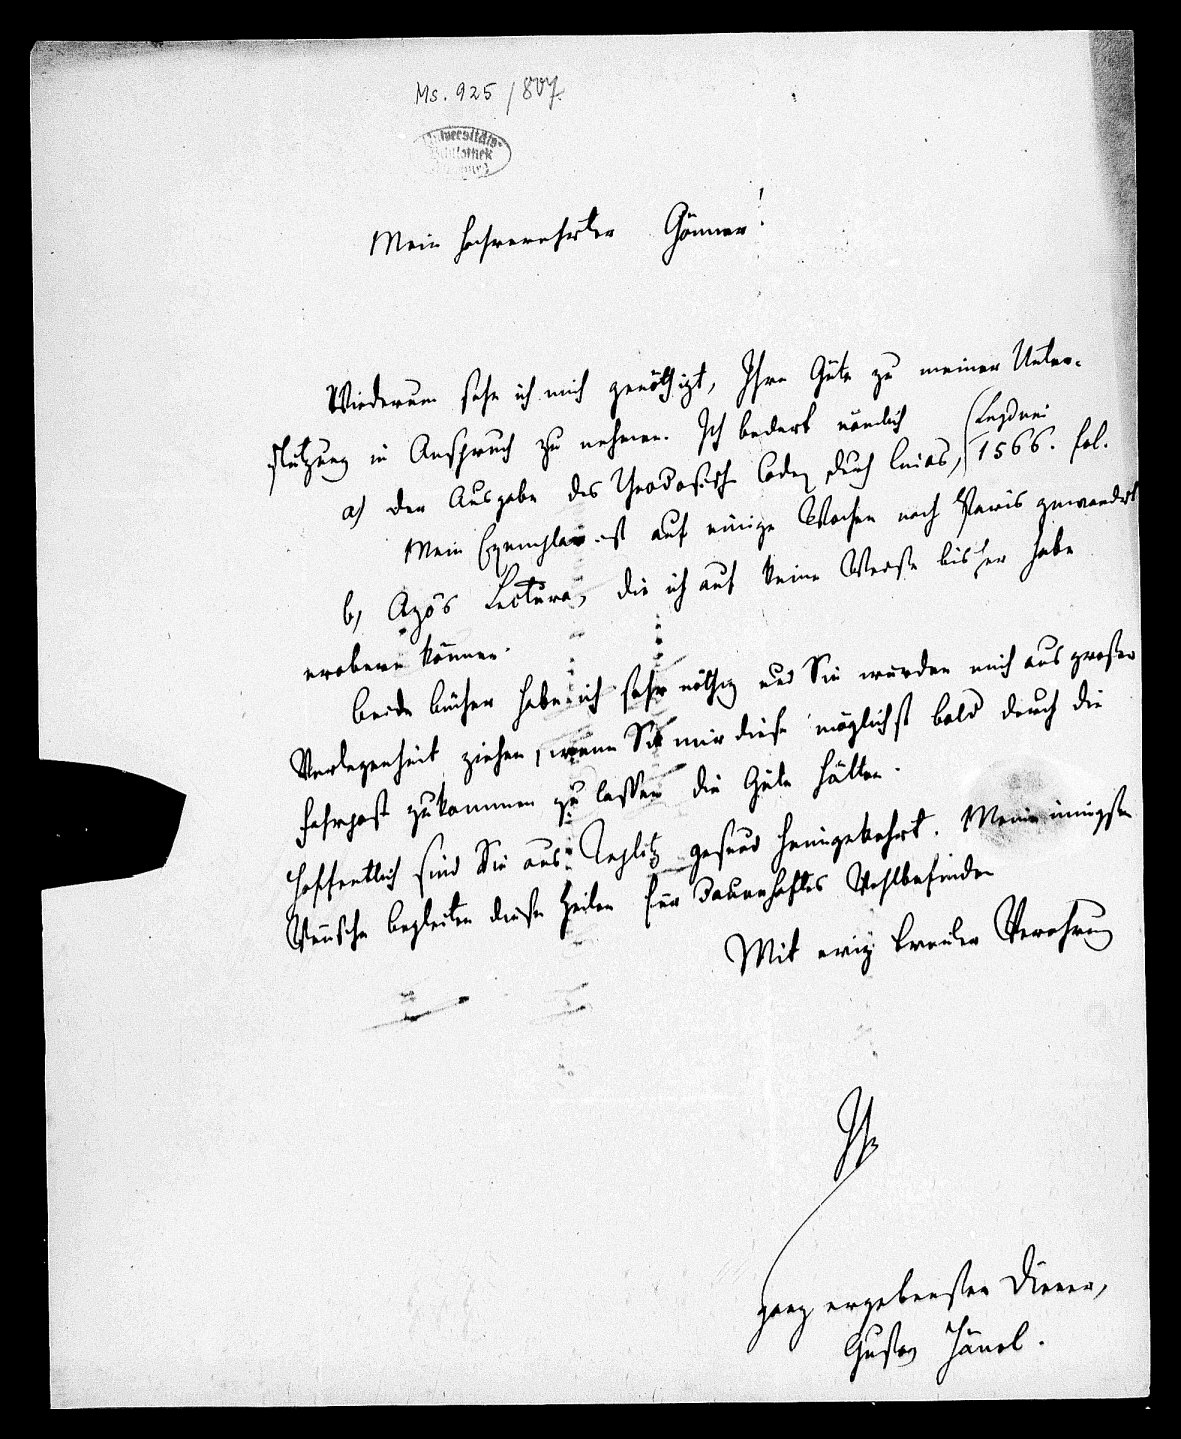 Ms. 925/807.
Universitäts-
Bibliothek
Mein hochverehrter Gönner!
Wiederum sehe ich mich genöthigt, Ihre Güte zu meiner Unter-
stützung in Anspruch zu nehmen. Ich bedarf nämlich
a) der Ausgabe des Theodosisch. Codex durch Cuias, (Lugduni
1566. fol.
Mein Exemplar ist auf einige Wochen nach Paris gewandert
b, Azo's Lectura, die ich auf keine Weise bisher habe
erobern können.
Beide Bücher habe ich sehr nöthig und Sie würden mich aus großer
Verlegenheit ziehen, wenn Sie mir diese möglichst bald durch die
Fahrpost zukommen zu lassen die Güte hätten.
Hoffentlich sind Sie aus Teplitz gesund heimgekehrt. Meine innigsten
Wünsche begleiten diese Zeilen für dauerhaftes Wohlbefinden
Mit ewig treuer Verehrung
Ihr
ganz ergebenster Diener,
Gustav Hänel.